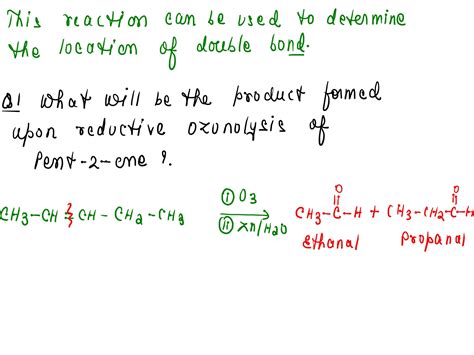 This reaction can be used to determine
the location of double bond.
Q1 What will be the product formed
upon reductive ozonolysis of
Pent-2-ene ?.
CH3-CH=CH-CH2-CH3 (i) O3 (ii) Zn/H2O CH3-C(=O)-H + CH3-CH2-C(=O)-H
Ethanal Propanal